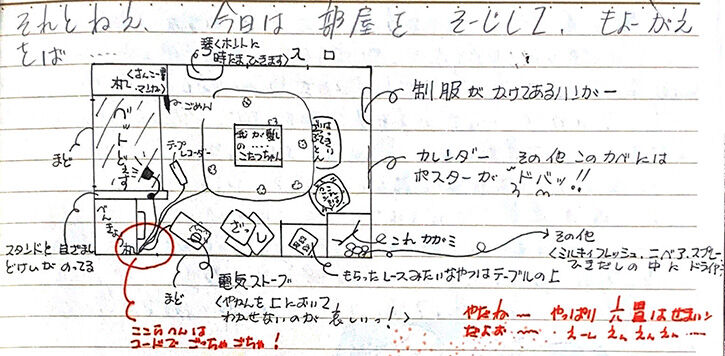 それとねえ、今日は部屋をそーじして、もよーがえ
をば……
琴くホントに
時たまひきます〉
スロ
机
ごめん
ベットどぇす
まど
テープ
レコーダー
我が愛しの
……
こたつちゃん
制服がかけてあるハンガー
カレンダー その他このカベには
ポスターが ドバッ!!
べんきょう
机
スタンドと目ざまし
どけいがのってる
ざっし
これカガミ
その他
〈ミルキィフレッシュ、ニベア、スプレー
ひきだしの中にドライヤー
もらったレースみたいなやつはテーブルの上
電気ストーブ
〈やかんを上において
わかせないのが哀しいっ!〉
まど
ここらへんは
コードでごっちゃごちゃ!
やだね〜 やっぱり六畳はせまいン
だよお〜 えーん えんえん〜